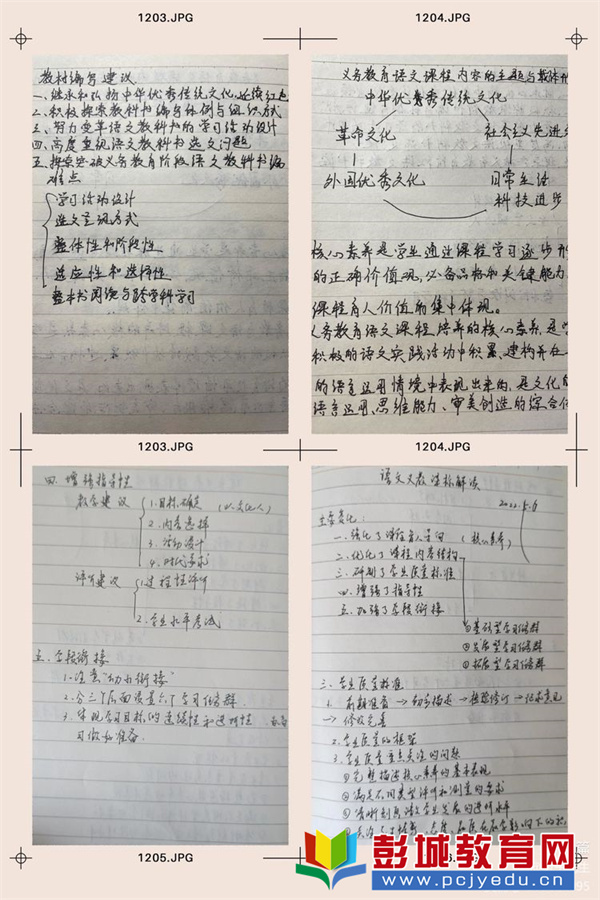 1203.JPG
1204.JPG
教材编写建议
一、继承和弘扬中华优秀传统文化,延续红色
二、积极探索教科书编写体例与组织方式
三、努力变革语文教科书的学习活动设计
四、高度重视语文教科书选文问题
五、探索突破义务教育阶段语文教科书编
难点
学习活动设计
选文呈现方式
整体性和阶段性
适应性和选择性
整本书阅读与跨学科学习
义务教育语文课程内容的主题与载体形
中华优秀传统文化
革命文化
社会主义先进文
外国优秀文化
日常生活
科技进步
核心素养是学生通过课程学习逐步形
的正确价值观,必备品格和关键能力
课程育人价值的集中体现。
义务教育语文课程培养的核心素养,是学
积极的语文实践活动中积累、建构并在
的语言运用情境中表现出来的,是文化自
语言运用、思维能力、审美创造的综合体
1203.JPG
1204.JPG
四、增强指导性
教学建议
1.目标确定 (以文化人)
2.内容选择
3.活动设计
4.时代要求
评价建议
1.过程性评价
2.学业水平考试
五、学段衔接
1.注意"幼小衔接"
2.分三个层面设置六个学习任务群.
3.体现学习目标的连续性和进阶性
习做好准备.
语文义教课标解读
2022.5.6
主要变化:
一、强化了课程育人导向 (核心素养)
二、优化了课程内容结构
三、研制了学业质量标准
四、增强了指导性
五、加强了学段衔接
①基础型学习任务群
②发展型学习任务群
③拓展型学习任务群
三、学业质量标准
1. 前期准备→初步描述→检验修订→征求意见
→修改完善
2.学业质量的框架
3.学业质量重点关注的问题
①完整描述核心素养的基本表现
②满足不同类型评价和测量的要求
③清晰刻画语文学业发展的进阶水平
1205.JPG
彭城教育网
www.pcjyedu.cn